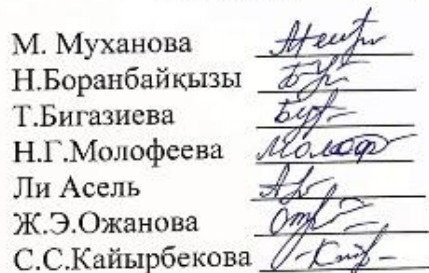 М. Муханова
Н.Боранбайқызы
Т.Бигазиева
Н.Г.Молофеева
Ли Асель
Ж.Э.Ожанова
С.С.Кайырбекова